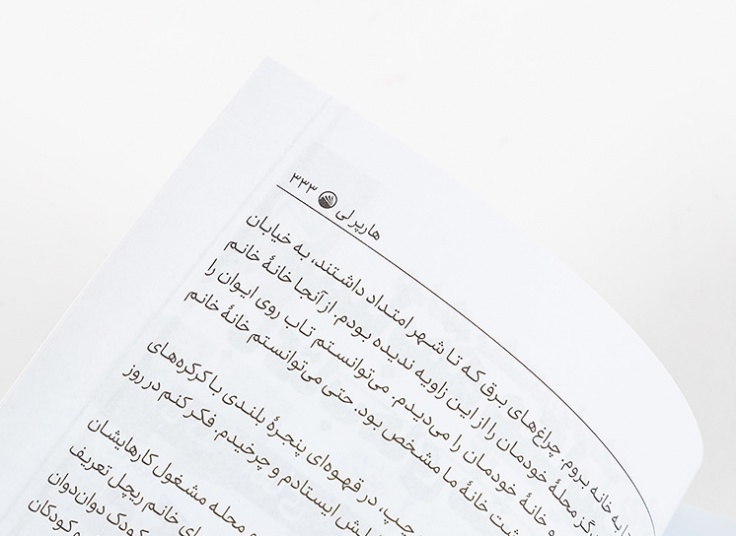 هارپر لی ۳۳۳
به خانه بروم. چراغ‌های برق که تا شهر امتداد داشتند، به خیابان
محلهٔ خودمان را از این زاویه ندیده بودم. از آنجا خانهٔ خانم
و خانهٔ خودمان را می‌دیدم. می‌توانستم تاب روی ایوان را
خانهٔ ما مشخص بود. حتی می‌توانستم خانهٔ خانم
چپ، در قهوه‌ای پنجرهٔ بلندی با کرکره‌های
ایستادم و چرخیدم. فکر کنم در روز
محله مشغول کارهایشان
خانم ریچل تعریف
کودک دوان‌دوان
و کودکان